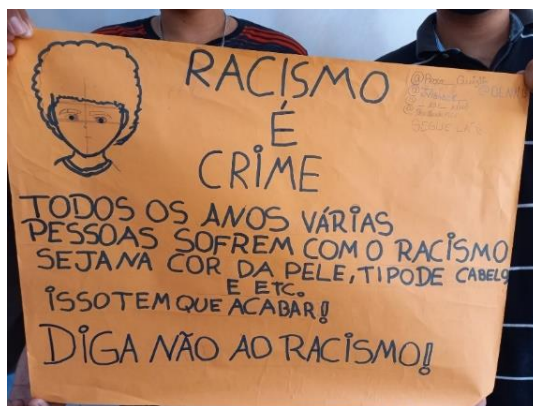 RACISMO
É
CRIME
TODOS OS ANOS VÁRIAS
PESSOAS SOFREM COM O RACISMO
SEJA NA COR DA PELE, TIPO DE CABELO
E ETC.
ISSO TEM QUE ACABAR!
DIGA NÃO AO RACISMO!